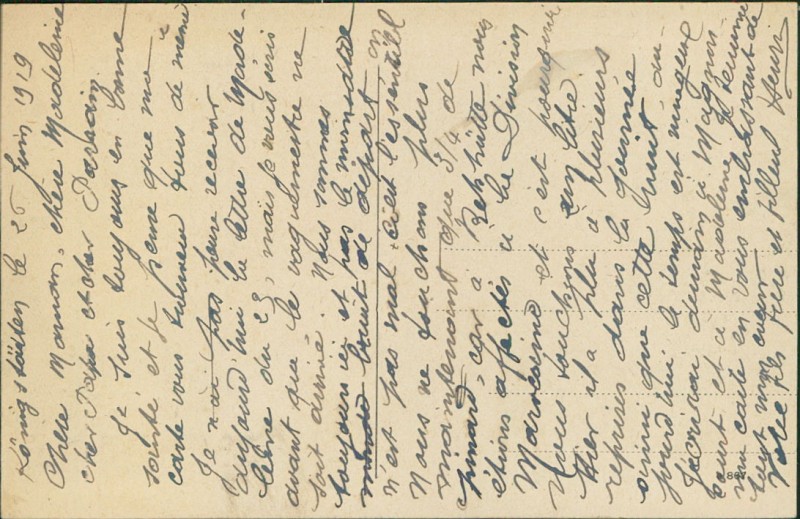 Königstäiten le 25 Juin 1919
Chère Maman, chère Madeleine
cher Papa et cher Parrain
Je suis toujours en bonne
santé et je pense que ma
carte vous trouvera tous de même
Je n'ai pas encore recevoir
aujourd'hui la lettre de Made-
leine du 23, mais je vous écris
avant que le vaguemestre ne
soit arrivé. Nous sommes
toujours ici et pas le moindre
bruit de départ on
n'est pas mal c'est l'essentiel
Nous ne touchons plus
maintenant que 3/4 de
pinard, car à nous
étions affectés à la Division
Marocaine et c'est pourquoi
nous touchions un litre
Hier il a plu à plusieurs
reprises dans la journée
ainsi que cette nuit, au-
jourd'hui le temps est nuageux
J'écrirai demain à
court et à Madeleine. Je termine
ma carte en vous embrassant de
tout mon cœur
Votre fils frère et filleul Henri